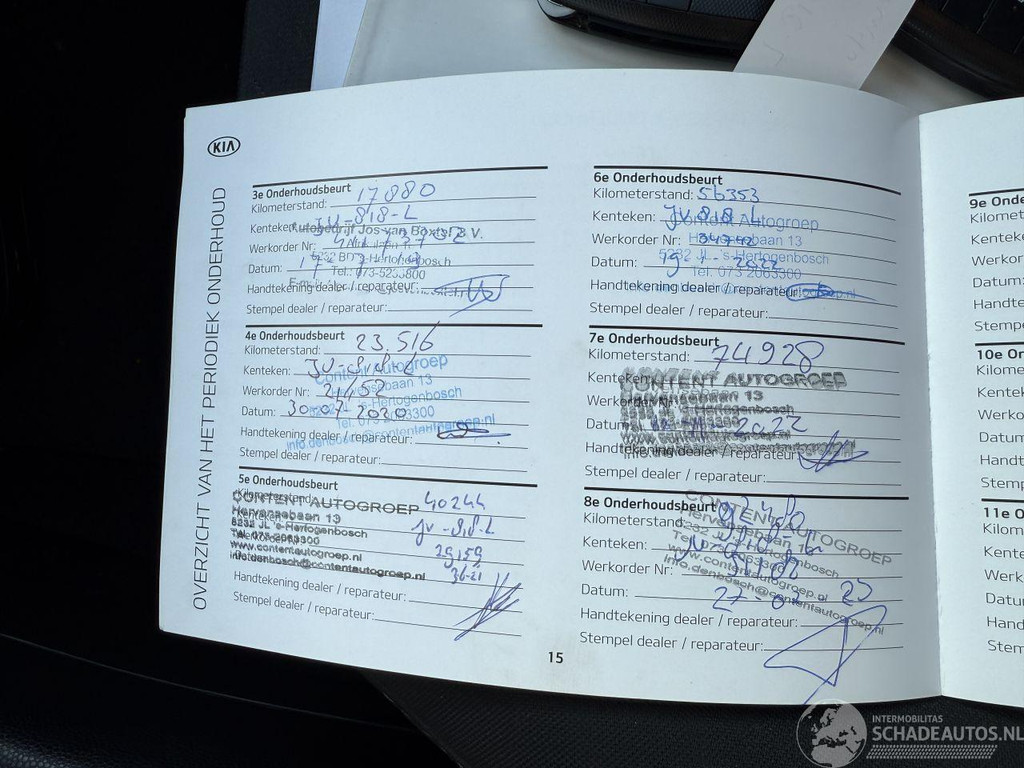 KIA
OVERZICHT VAN HET PERIODIEK ONDERHOUD
3e Onderhoudsbeurt
Kilometerstand: 17880
Kenteken: JV-818-L
Autobedrijf Jos van Boxtel B.V.
Werkorder Nr:
5232 's-Hertogenbosch
Datum: 17
Tel.: 073-5233800
Handtekening dealer / reparateur:
Stempel dealer / reparateur:
4e Onderhoudsbeurt
Kilometerstand: 23.516
Content Autogroep
Kenteken:
Hervensebaan 13
Werkorder Nr: 21452
5232 JL 's-Hertogenbosch
Datum: 2020
Tel. 073 2063300
Handtekening dealer / reparateur:
info.denbosch@contentautogroep.nl
Stempel dealer / reparateur:
5e Onderhoudsbeurt
Kilometerstand: 40244
CONTENT AUTOGROEP
Kenteken: JV-818-L
Hervensebaan 13
5232 JL 's-Hertogenbosch
Werkorder Nr: 29159
Tel. 073-2063300
www.contentautogroep.nl
info.denbosch@contentautogroep.nl
Handtekening dealer / reparateur:
Stempel dealer / reparateur:
6e Onderhoudsbeurt
Kilometerstand: 56353
Kenteken: JV 818 L
Content Autogroep
Werkorder Nr: 34742
Hervensebaan 13
5232 JL 's-Hertogenbosch
Datum: 2022
Tel. 073 2063300
Handtekening dealer / reparateur:
Stempel dealer / reparateur:
7e Onderhoudsbeurt
Kilometerstand: 74928
Kenteken:
CONTENT AUTOGROEP
Hervensebaan 13
Werkorder Nr:
5232 JL 's-Hertogenbosch
Datum: 2022
www.contentautogroep.nl
Handtekening dealer / reparateur:
info.denbosch@contentautogroep.nl
Stempel dealer / reparateur:
8e Onderhoudsbeurt
Kilometerstand:
CONTENT AUTOGROEP
Kenteken:
Hervensebaan 13
5232 JL 's-Hertogenbosch
Werkorder Nr:
Tel. 073-2063300
www.contentautogroep.nl
Datum: 27-07 23
info.denbosch@contentautogroep.nl
Handtekening dealer / reparateur:
Stempel dealer / reparateur:
15
9e Onde
Kilomet
Kenteke
Werkor
Datum:
Handte
Stempe
10e On
Kilome
Kentek
Werko
Datum
Handt
Stemp
11e O
Kilom
Kente
Werk
Datu
Hand
Stem
INTERMOBILITAS
SCHADEAUTOS.NL